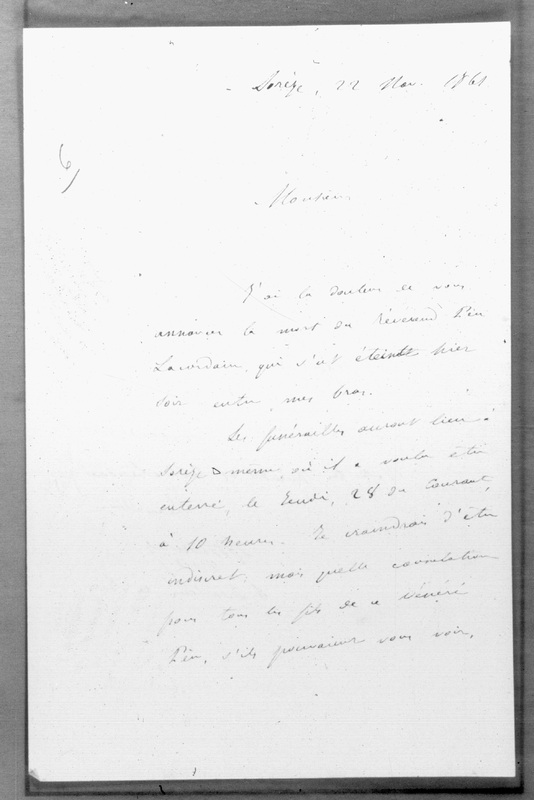 Sorèze, 22 Nov. 1861
6)
Monsieur,
J'ai la douleur de vous
annoncer la mort du Révérend Père
Lacordaire, qui s'est éteint hier
soir entre mes bras.
Les funérailles auront lieu à
Sorèze même, où il a voulu être
enterré, le Jeudi, 28 du courant,
à 10 heures. Je craindrais d'être
indiscret, mais quelle consolation
pour tous les fils de ce vénéré
Père, s'ils pouvaient vous voir,